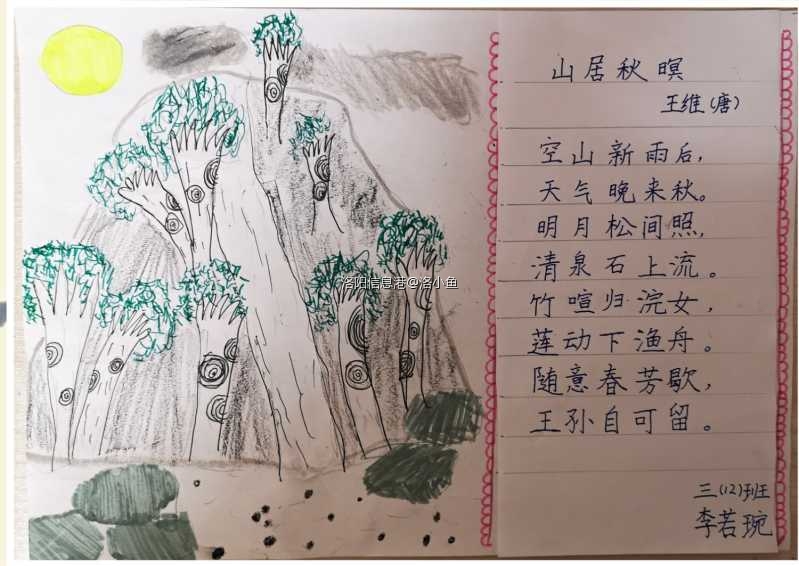 山居秋暝
王维(唐)
空山新雨后,
天气晚来秋。
明月松间照,
清泉石上流。
竹喧归浣女,
莲动下渔舟。
随意春芳歇,
王孙自可留。
三(12)班
李若琬
洛阳信息港@洛小鱼